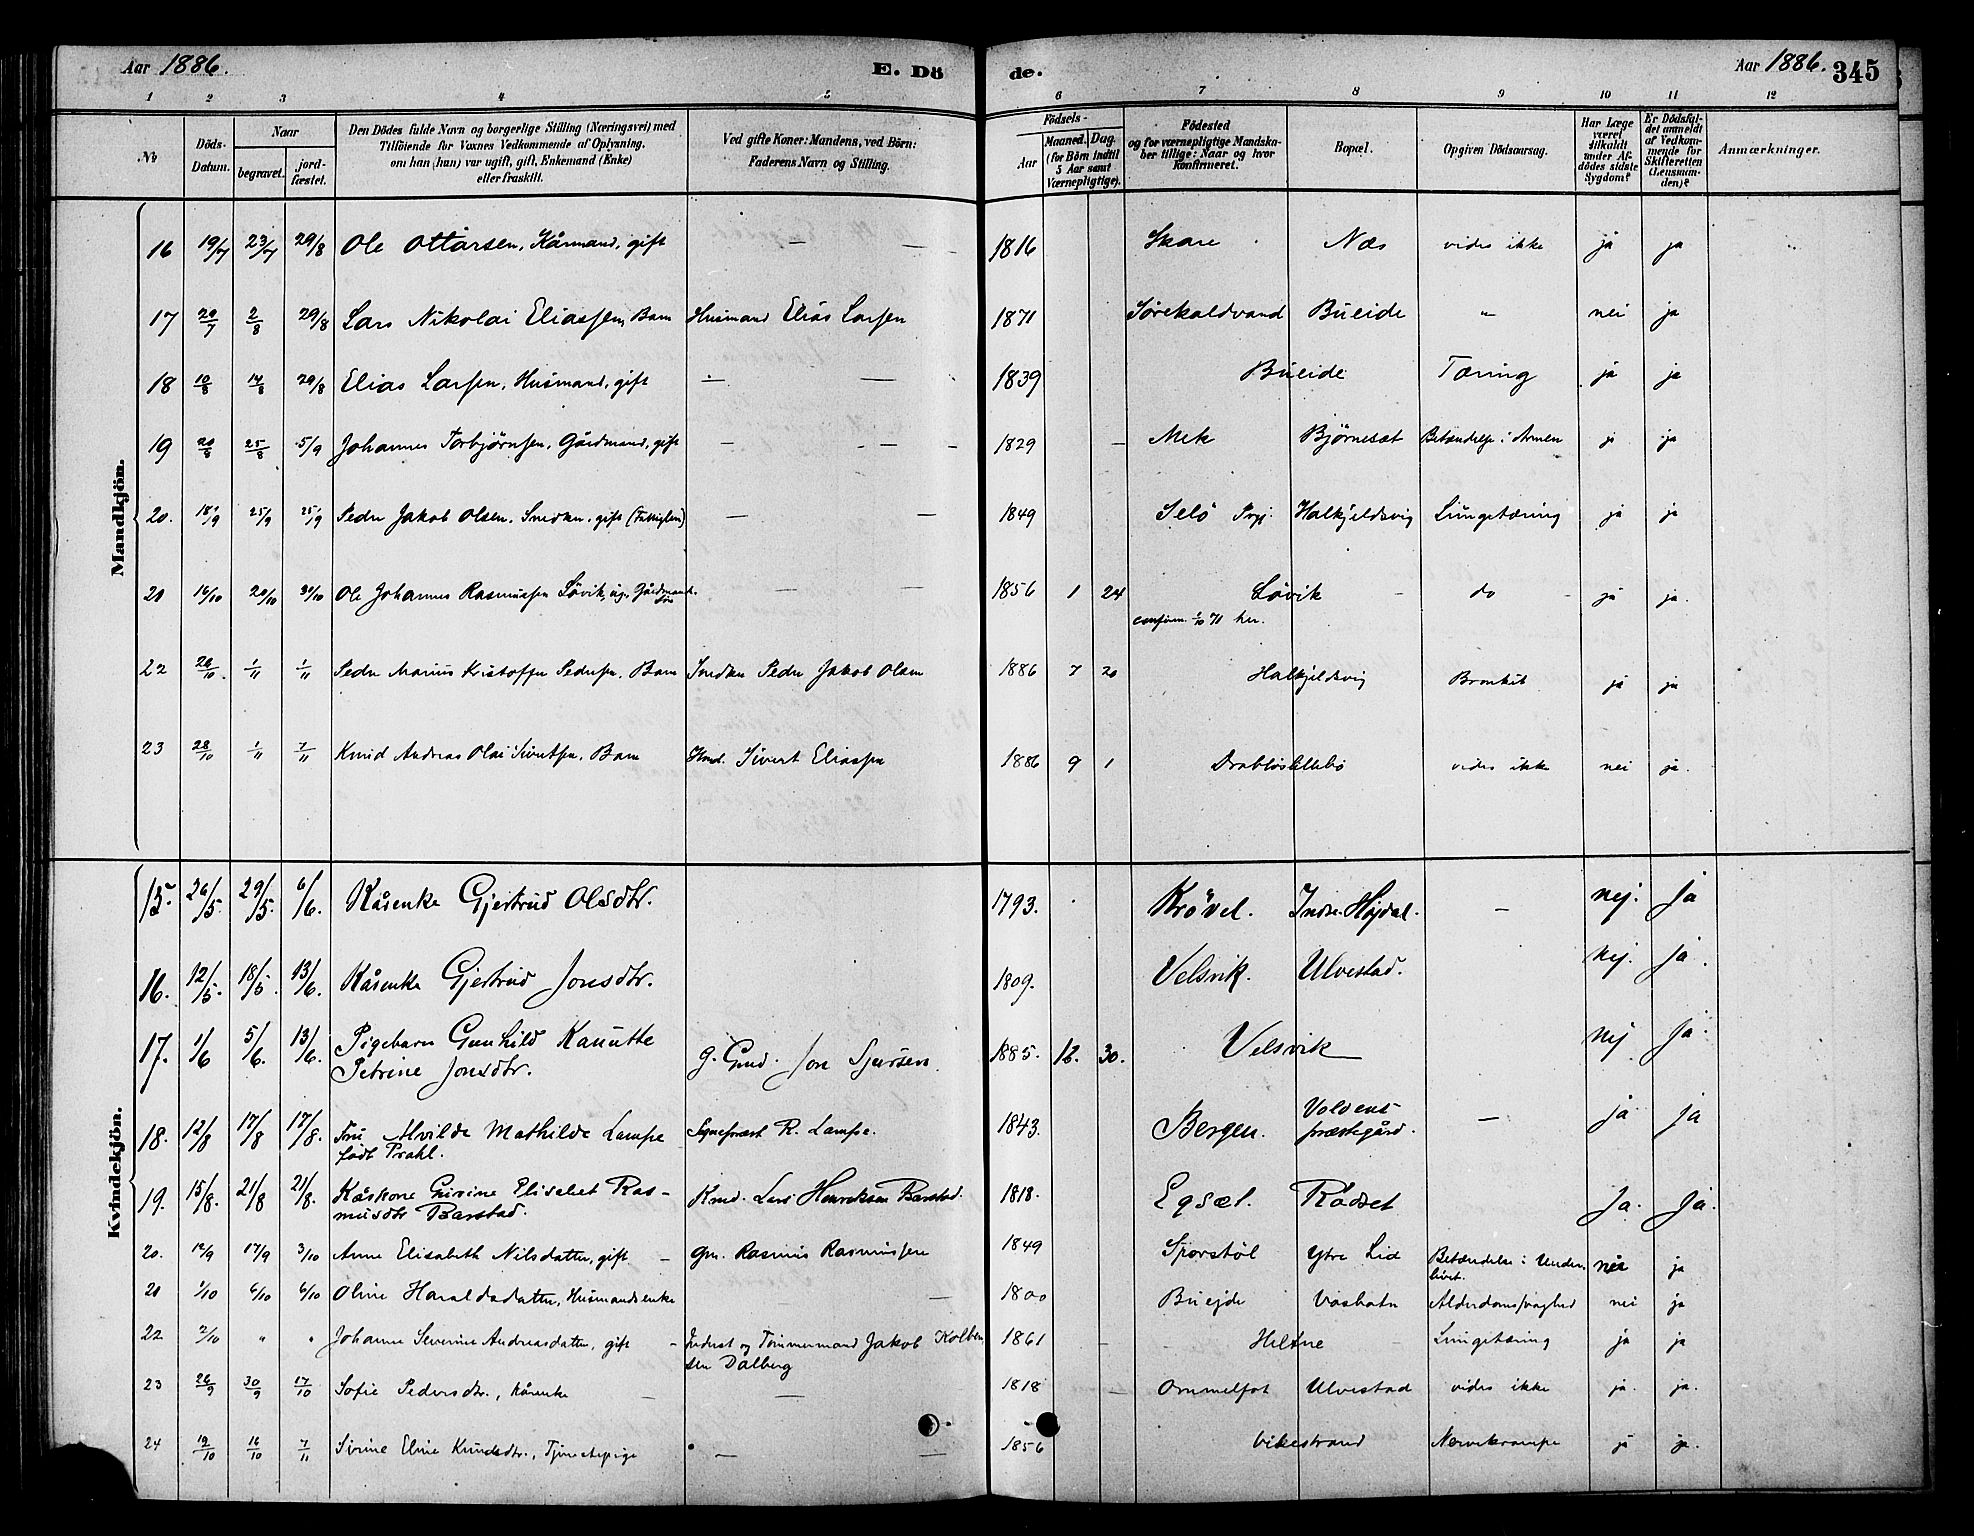 Aar 1886. E. Dö
de. Aar 1886. 345
1 2 3 4 5 6 7 8 9 10 11 12
No
Döds-
Datum.
Naar
begravet. jord-
fæstet.
Den Dödes fulde Navn og borgerlige Stilling (Næringsvei) med
Tilföiende for Voxnes Vedkommende af Oplysning,
om han (hun) var ugift, gift, Enkemand (Enke)
eller fraskilt.
Ved gifte Koner: Mandens, ved Börn:
Faderens Navn og Stilling.
Födsels-
Aar
Maaned. Dag.
(for Börn indtil
5 Aar samt
Værnepligtige).
Födested
og for værnepligtige Mandska-
ber tillige: Naar og hvor
konfirmeret.
Bopæl.
Opgiven Dödsaarsag.
Har Læge
været
tilkaldt
under Af-
dödes sidste
Sygdom?
Er Dödsfal-
det anmeldt
af Vedkom-
mende for
Skifteretten
(Lensman-
den)?
Anmærkninger.
Mandkjön.
16 19/7 23/7 29/8 Ole Ottarsen, Kårmand, gift — — 1816 Skare Næs vides ikke ja ja
17 29/7 2/8 29/8 Lars Nikolai Eliassen, Barn Husmand Elias Larsen 1871 Sørekaldvand Bueide " nei ja
18 10/8 14/8 29/8 Elias Larsen, Husmand, gift — — 1839 Bueide Tæring ja ja
19 20/8 25/8 5/9 Johannes Torbjørnsen, Gårdmand, gift — — 1829 Mek Bjørneset Betændelse i Armen ja ja
20. 18/9 25/9 25/9 Peder Jakob Olsen, Snedker, gift (Fattiglem) — — 1849 Selö Prgj. Halkjeldsvig Lungetæring ja ja
21 16/10 20/10 30/10 Ole Johannes Rasmussen Løvik, ug. Gårdmands
søn — — 1856 1 24 Løvik do ja ja.
confirm. 1/10 71 her.
22 26/10. 1/11 1/11 Peder Marius Kristoffer Pedersen, Barn Snedker Peder Jakob Olsen 1886 7 20 Halkjeldsvig Bronkit ja ja
23 28/10 1/11 7/11 Knud Andreas Olai Sivertsen, Barn Hmd. Sivert Eliassen 1886 9 1 Drabløslillebø vides ikke nei ja.
Kvindekjön.
15. 26/5. 29/5. 6/6. Kårenke Gjertrud Olsdtr. 1793. Krøvel. Indre Højdal. — nej. Ja
16. 12/5. 18/5. 13/6. Kårenke Gjertrud Jonsdtr. 1809. Velsvik. Ulvestad. nej. Ja.
17. 1/6 5/6. 13/6. Pigebarn Gunhild Kanutte
Petrine Jonsdtr. g. Gmd. Jon Sjursen 1885. 12. 30. Velsvik nej Ja.
18. 12/8 17/8 17/8. Fru Alvilde Mathilde Lampe
født Prahl. Sognepræst R. Lampe. 1843. Bergen. Voldens
præstegård. — ja ja
19. 15/8. 21/8 21/8. Kårkone Elisabet Ras-
musdtr Barstad. Kmd. Lars Henriksen Barstad. 1818. Egsæt. Rødset Ja. Ja.
20. 12/9 17/9 3/10 Anne Elisabeth Nilsdatter, gift — gm. Rasmus Rasmussen 1849 Sporstøl Ytre Lid Betændelse i Under-
livet. nei ja
21 1/10 6/10 6/10 Oline Haraldsdatter, Husmandsenke — 1800 Buejde Vasbotn Alderdomssvaghed nei ja
22 2/10 " " Johanne Severine Andreasdatter, gift — Inderst og Tømmermand Jakob Kolben-
sen Dalberg 1861 — Heltne Lungetæring ja ja
23 26/9 30/9 17/10 Sofie Pedersdtr., kårenke — — 1818 — Ommelfot Ulvestad vides ikke ja. ja.
24 12/10 16/10 7/11 Sivine Eline Knudsdtr., Tjenestepige — — 1856 Vikestrand Nervekrampe ja ja.